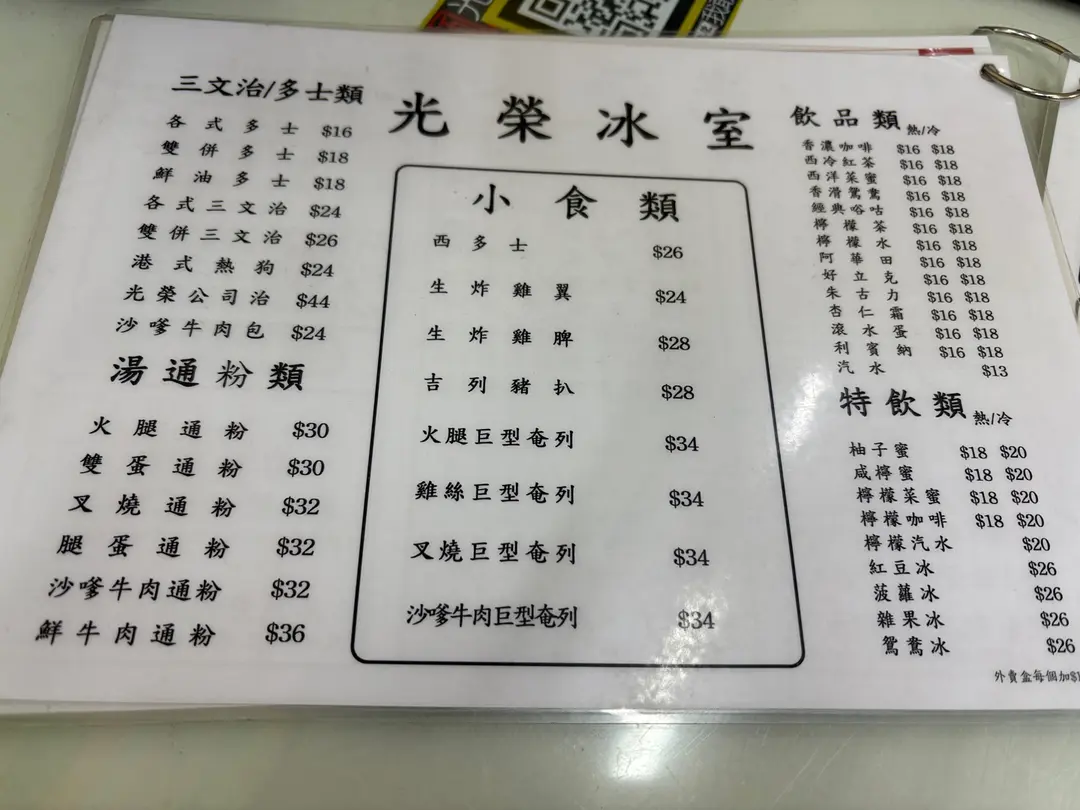 光榮冰室
三文治/多士類
各式多士 $16
雙併多士 $18
鮮油多士 $18
各式三文治 $24
雙併三文治 $26
港式熱狗 $24
光榮公司治 $44
沙嗲牛肉包 $24
湯通粉類
火腿通粉 $30
雙蛋通粉 $30
叉燒通粉 $32
腿蛋通粉 $32
沙嗲牛肉通粉 $32
鮮牛肉通粉 $36
小食類
西多士 $26
生炸雞翼 $24
生炸雞脾 $28
吉列豬扒 $28
火腿巨型奄列 $34
雞絲巨型奄列 $34
叉燒巨型奄列 $34
沙嗲牛肉巨型奄列 $34
飲品類 熱/冷
香濃咖啡 $16 $18
西冷紅茶 $16 $18
西洋菜蜜 $16 $18
香滑鴛鴦 $16 $18
經典唂咕 $16 $18
檸檬茶 $16 $18
檸檬水 $16 $18
阿華田 $16 $18
好立克 $16 $18
朱古力 $16 $18
杏仁霜 $16 $18
滾水蛋 $16 $18
利賓納 $16 $18
汽水 $13
特飲類 熱/冷
柚子蜜 $18 $20
咸檸蜜 $18 $20
檸檬菜蜜 $18 $20
檸檬咖啡 $18 $20
檸檬汽水 $20
紅豆冰 $26
菠蘿冰 $26
雜果冰 $26
鴛鴦冰 $26
外賣盒每個加